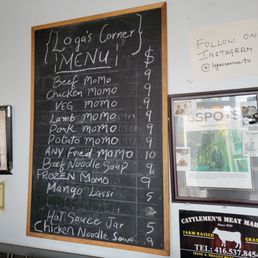 Loga's Corner
MENU
$
Beef Momo 9
Chicken Momo 9
VEG Momo 9
Lamb Momo 9
Pork Momo 9
Potato Momo 9
ANY Fried Momo 10
Beef Noodle Soup 9
FROZEN Momo 9
Mango Lassi 5
Hot Sauce Jar 5
Chicken Noodle Soup 9
FOLLOW ON
INSTAGRAM
@logascorner.to
CATTLEMEN'S MEAT MAR
FARM RAISED
GRAS
TEL: 416.537.854